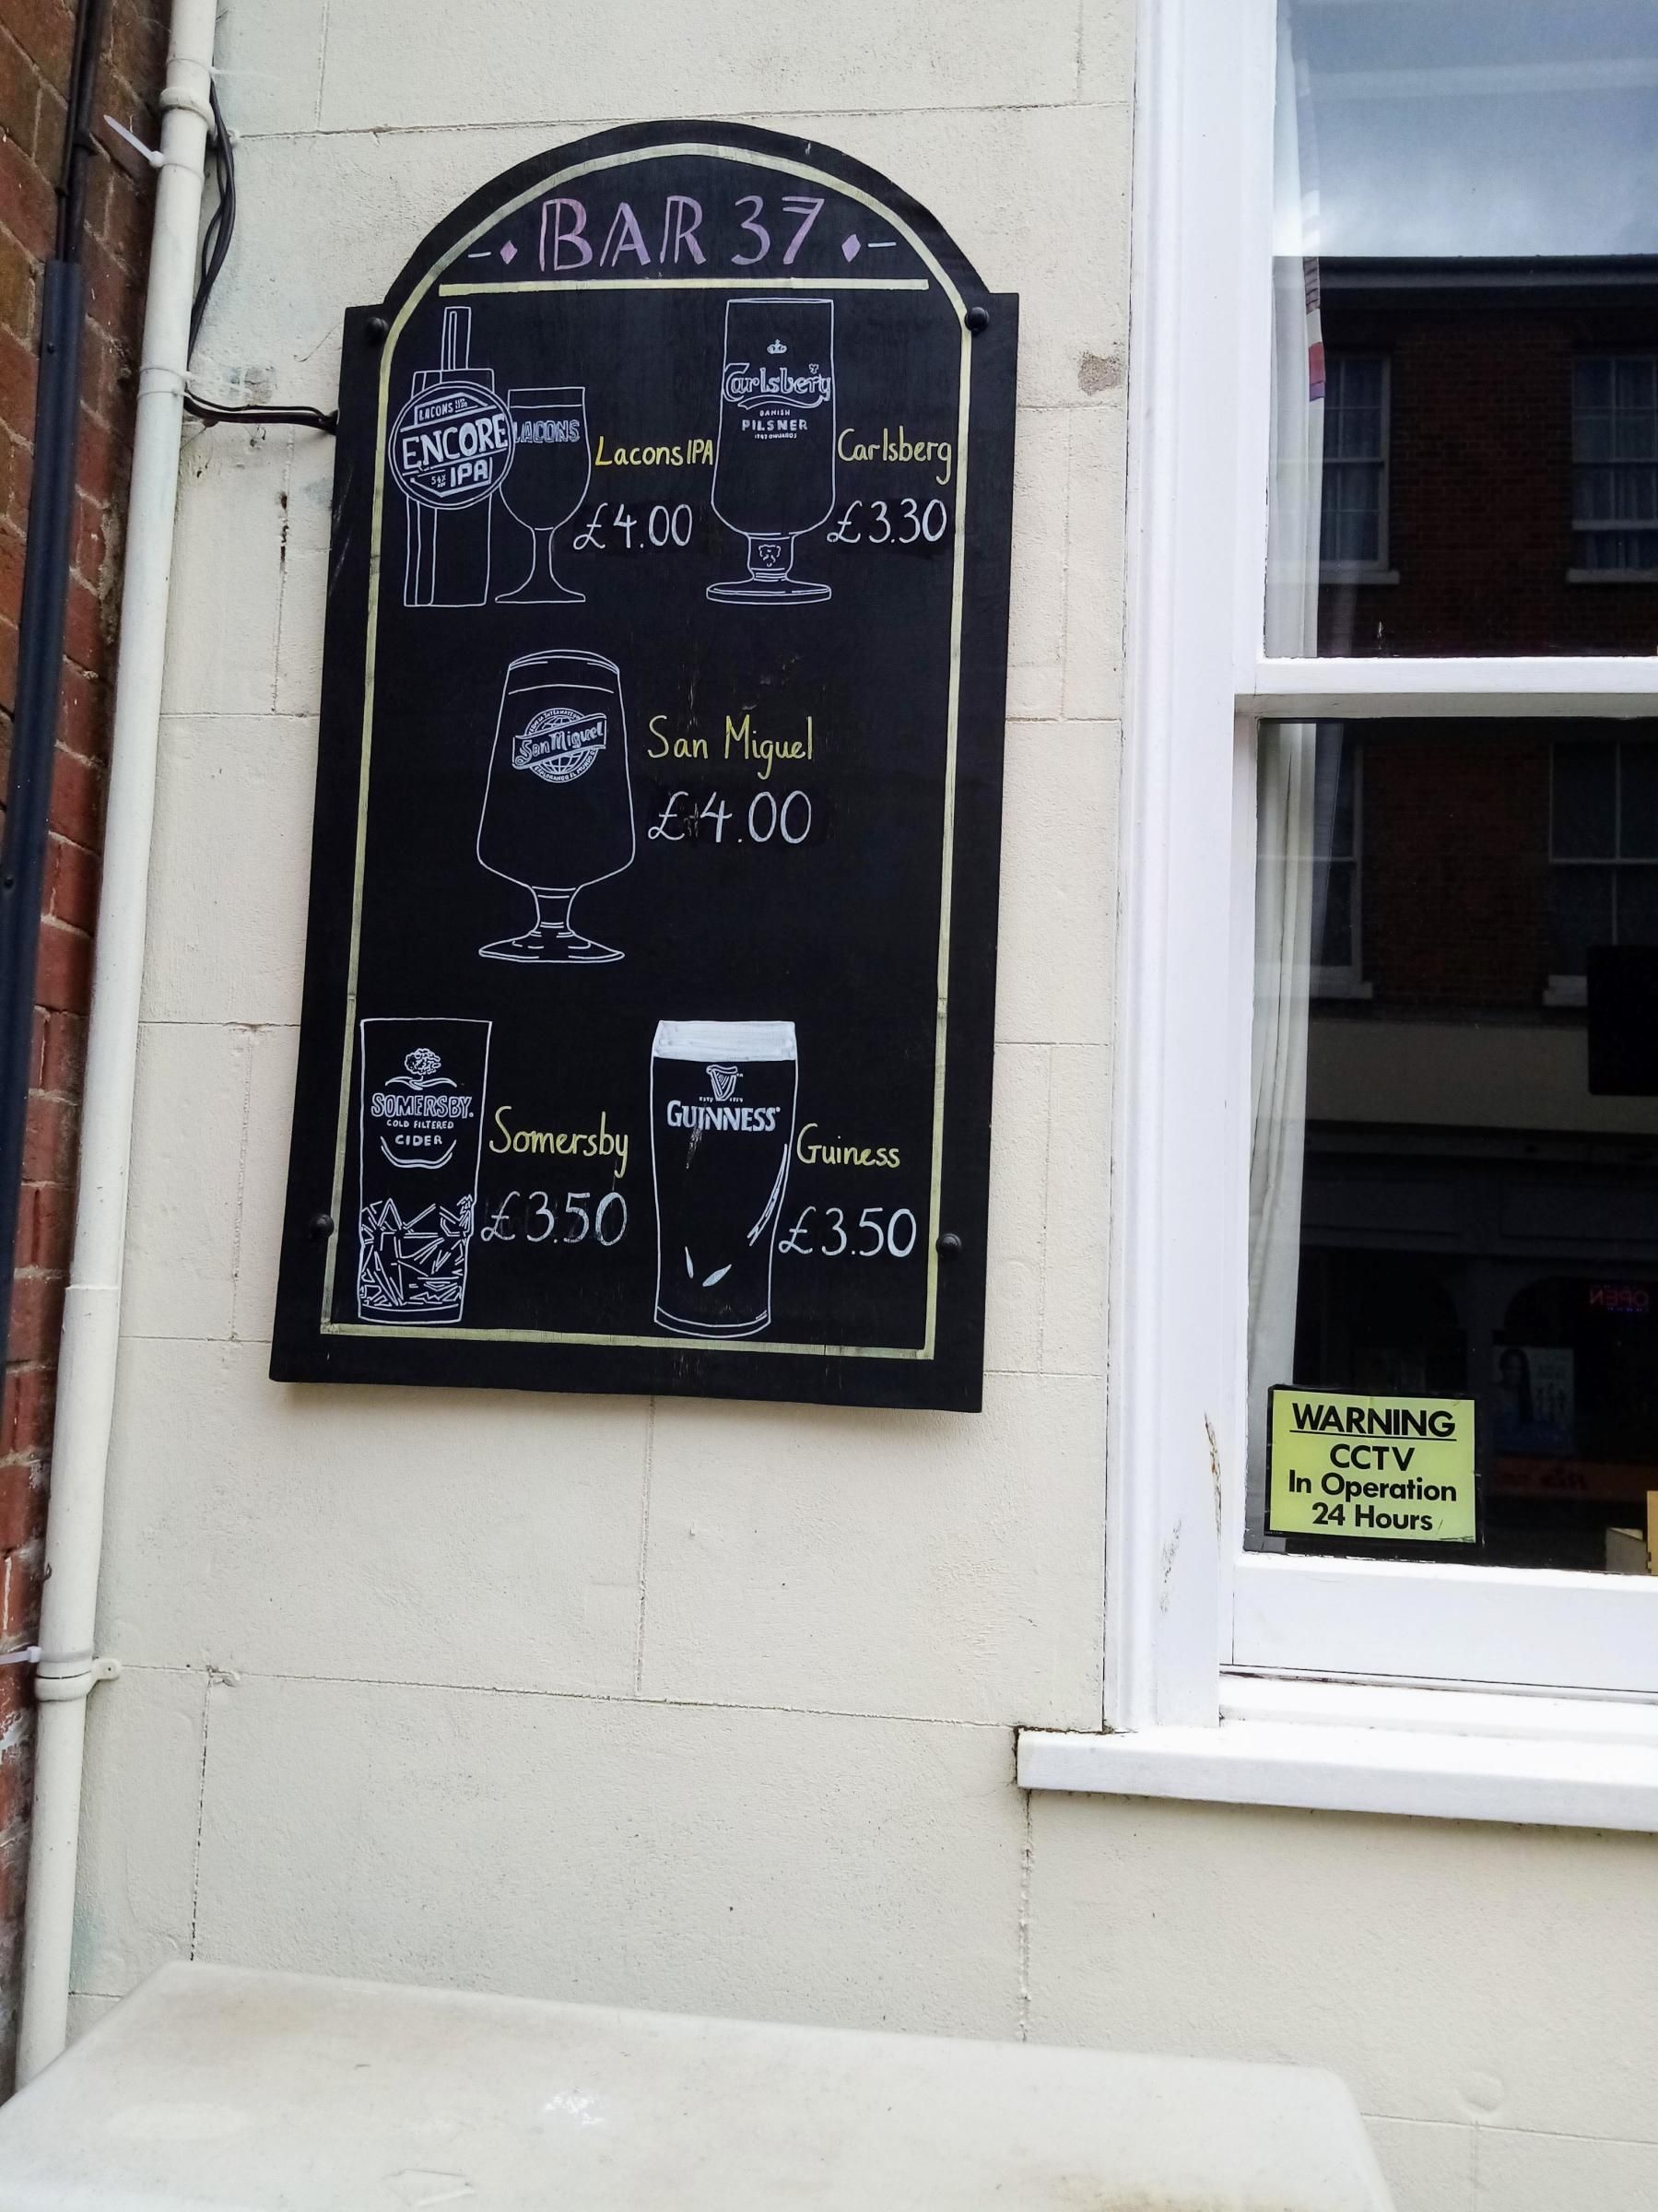 BAR 37
LACONS
ENCORE
IPA
LACONS
Lacons IPA
£4.00
Carlsberg
DANISH
PILSNER
Carlsberg
£3.30
San Miguel
San Miguel
£4.00
SOMERSBY.
COLD FILTERED
CIDER
Somersby
£3.50
GUINNESS
Guiness
£3.50
OPEN
WARNING
CCTV
In Operation
24 Hours